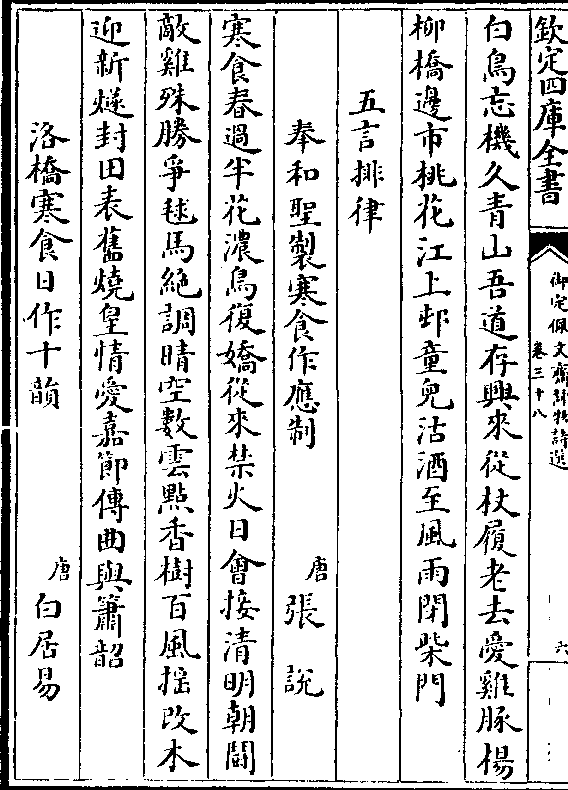 欽定四庫全書
御定佩文齋詠物詩選
卷三十八
六
白鳥忘機久青山吾道存興來從杖履老去愛雞豚楊
柳橋邊市桃花江上邨童兒沽酒至風雨閉柴門
五言排律
奉和聖製寒食作應制
唐
張說
寒食春過半花濃鳥復嬌從來禁火日會接清明朝鬬
敵雞殊勝爭毬馬絶調晴空數雲點香樹百風揺改木
迎新燧封田表舊燒皇情愛嘉節傳曲與簫韶
洛橋寒食日作十韻
唐
白居易